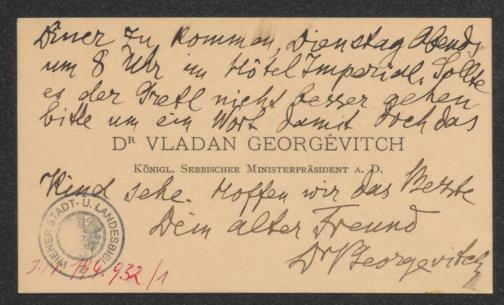 Diner zu kommen, Dienstag Abends
um 8 Uhr im Hôtel Imperial. Sollte
es der Gretl nicht besser gehen
bitte um ein Wort damit doch das
DR VLADAN GEORGÉVITCH
KÖNIGL. SERBISCHER MINISTERPRÄSIDENT A. D.
Kind sehe. Hoffen wir das Beste
Dein alter Freund
Dr VGeorgevitch
WIENER STADT- U. LANDESBIBL
194.932/1